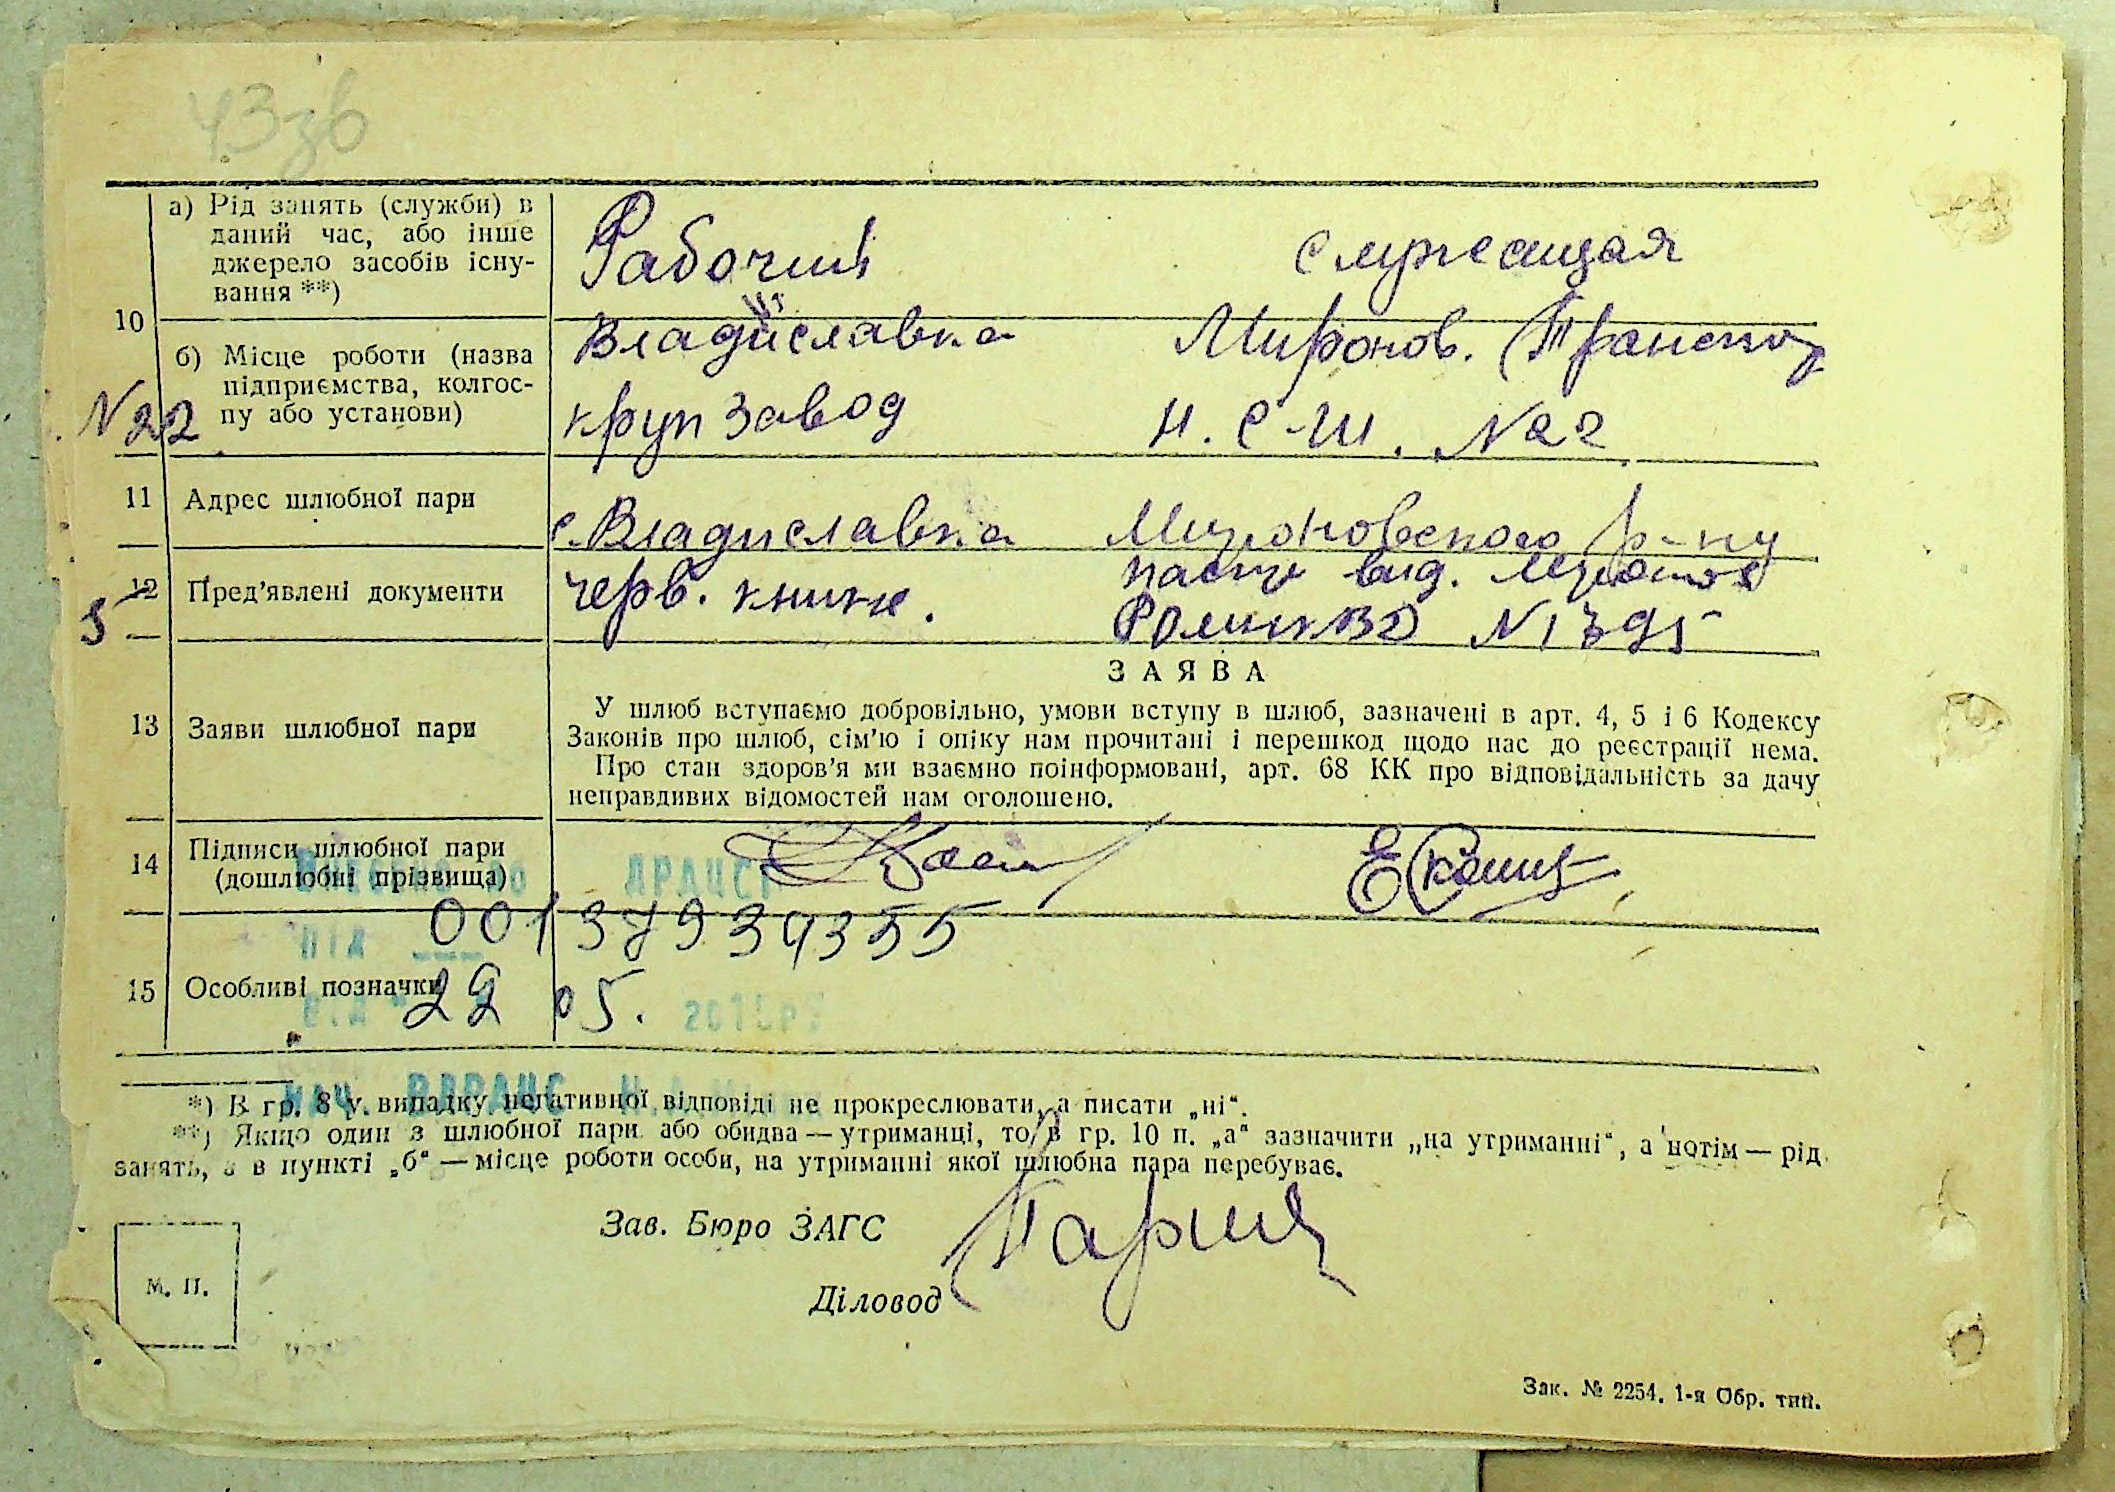 43зв
а) Рід занять (служби) в
даний час, або інше
джерело засобів існу-
вання **)
Рабочий служащая
10
б) Місце роботи (назва
підприємства, колгос-
пу або установи)
Владиславка Миронов.
круп завод Н. С-Ш. №22
№22
11 Адрес шлюбної пари
с. Владиславка Мироновского р-ну
12 Пред'явлені документи
5
черв. книж. вид.
№1795
З А Я В А
13 Заяви шлюбної пари
У шлюб вступаємо добровільно, умови вступу в шлюб, зазначені в арт. 4, 5 і 6 Кодексу
Законів про шлюб, сім'ю і опіку нам прочитані і перешкод щодо нас до реєстрації нема.
Про стан здоров'я ми взаємно поінформовані, арт. 68 КК про відповідальність за дачу
неправдивих відомостей нам оголошено.
14 Підписи шлюбної пари
(дошлюбні прізвища)
ДРАЦСГ
00137939355
ПІД
15 Особливі позначки
ВІД 29 05. 2015р.
НАЧ. ВДРАЦС
*) В гр. 8 у випадку негативної відповіді не прокреслювати, а писати „ні“.
**) Якщо один з шлюбної пари або обидва — утриманці, то в гр. 10 п. „а“ зазначити „на утриманні“, а потім — рід
занять, а в пункті „б“ — місце роботи особи, на утриманні якої шлюбна пара перебуває.
Зав. Бюро ЗАГС
Діловод
М. П.
Зак. № 2254. 1-я Обр. тип.